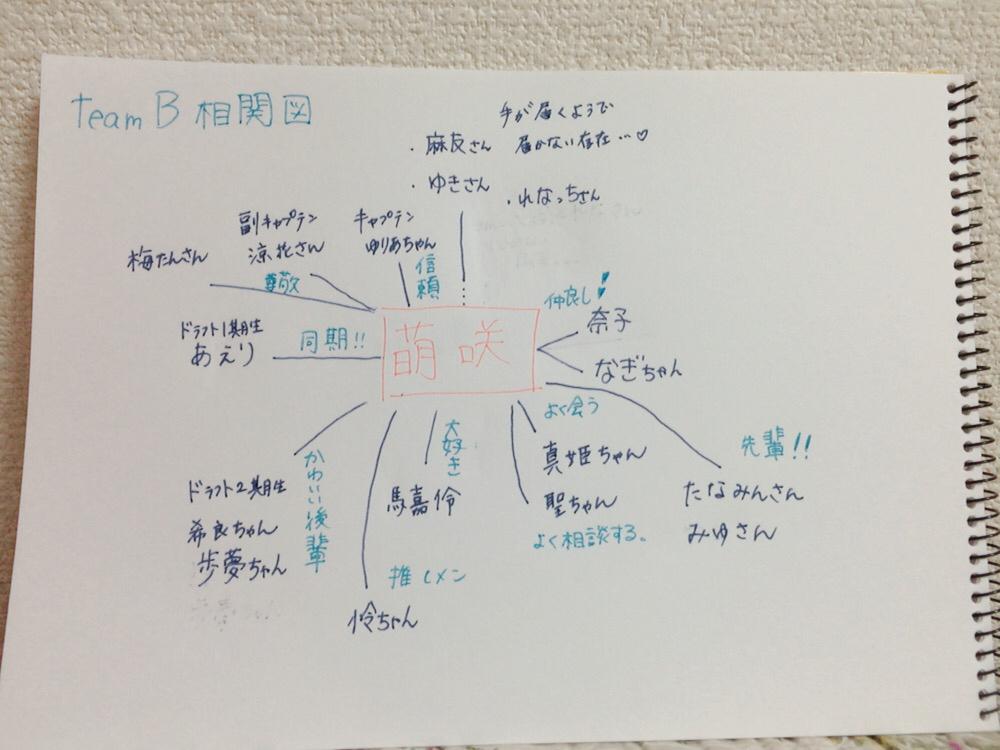 team B 相関図
手が届くようで
・麻友さん 届かない存在…♡
・ゆきさん ・れなっちさん
副キャプテン キャプテン
梅たんさん 涼花さん ゆりあちゃん
尊敬 信頼 仲良し!
奈子
ドラフト1期生
あえり 同期!! 萌咲
なぎちゃん
よく会う
大好き 真姫ちゃん 先輩!!
ドラフト2期生 かわいい後輩 馬嘉伶 聖ちゃん たなみんさん
希良ちゃん よく相談する。 みゆさん
歩夢ちゃん 推しメン
怜ちゃん